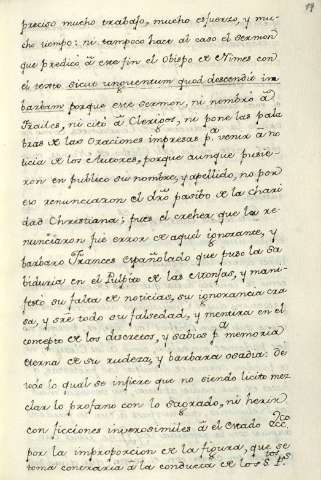 preciso mucho trabajo, mucho esfuerzo, y mu-
cho tiempo: ni tampoco hace al caso el Sermon
que predicò à este fin el Obispo de Nimes con
el texto sicut unguentum quod descendit in
barbam porque este Sermon, ni nombrò à
Frailes, ni citò à Clerigos, ni pone las pala
bras de las Oraciones impresas pª venir à no
ticia de los Autores, porque aunque pusie-
ron en publico su nombre, y apellido, no por
eso renunciaron el dro pasibo de la chari
dad Christiana; pues el creher que la re-
nunciaron fué error de aquel ignorante, y
barbaro Frances españolado que puso la sa
biduria en el Pulpito de las Monjas, y mani-
festò su falta de noticias, su ignorancia cra
sa, y sre todo su falsedad, y mentira en el
concepto de los discretos, y sabios pª memoria
eterna de su rudeza, y barbara osadia: de
todo lo qual se infiere que no siendo licito mez
clar lo profano con lo Sagrado, ni herir
con ficciones inverosimiles à el estado
por la improporcion de la figura, que se
toma contraria à la conducta de los